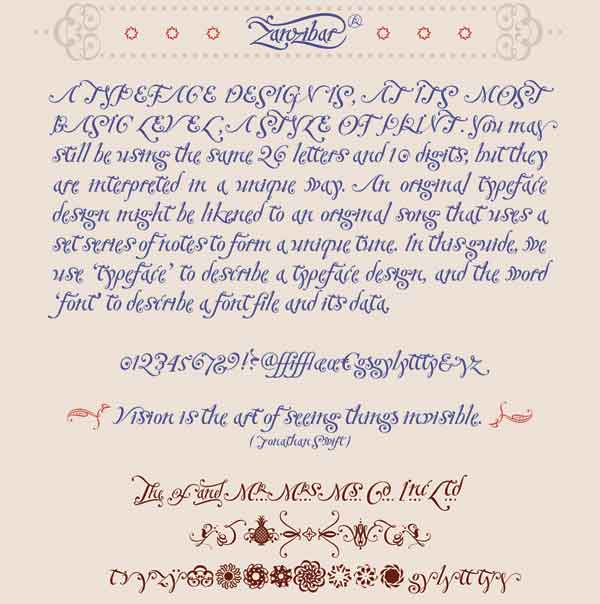 Zanzibar ®
A TYPEFACE DESIGN IS, AT ITS MOST
BASIC LEVEL, A STYLE OF PRINT. You may
still be using the same 26 letters and 10 digits, but they
are interpreted in a unique way. An original typeface
design might be likened to an original song that uses a
set series of notes to form a unique tune. In this guide, we
use ‘typeface’ to describe a typeface design, and the word
‘font’ to describe a font file and its data.
0123456789!?@
Vision is the art of seeing things invisible.
(Jonathan Swift)
The of and Mr. Mrs. Ms. Co. Inc. Ltd